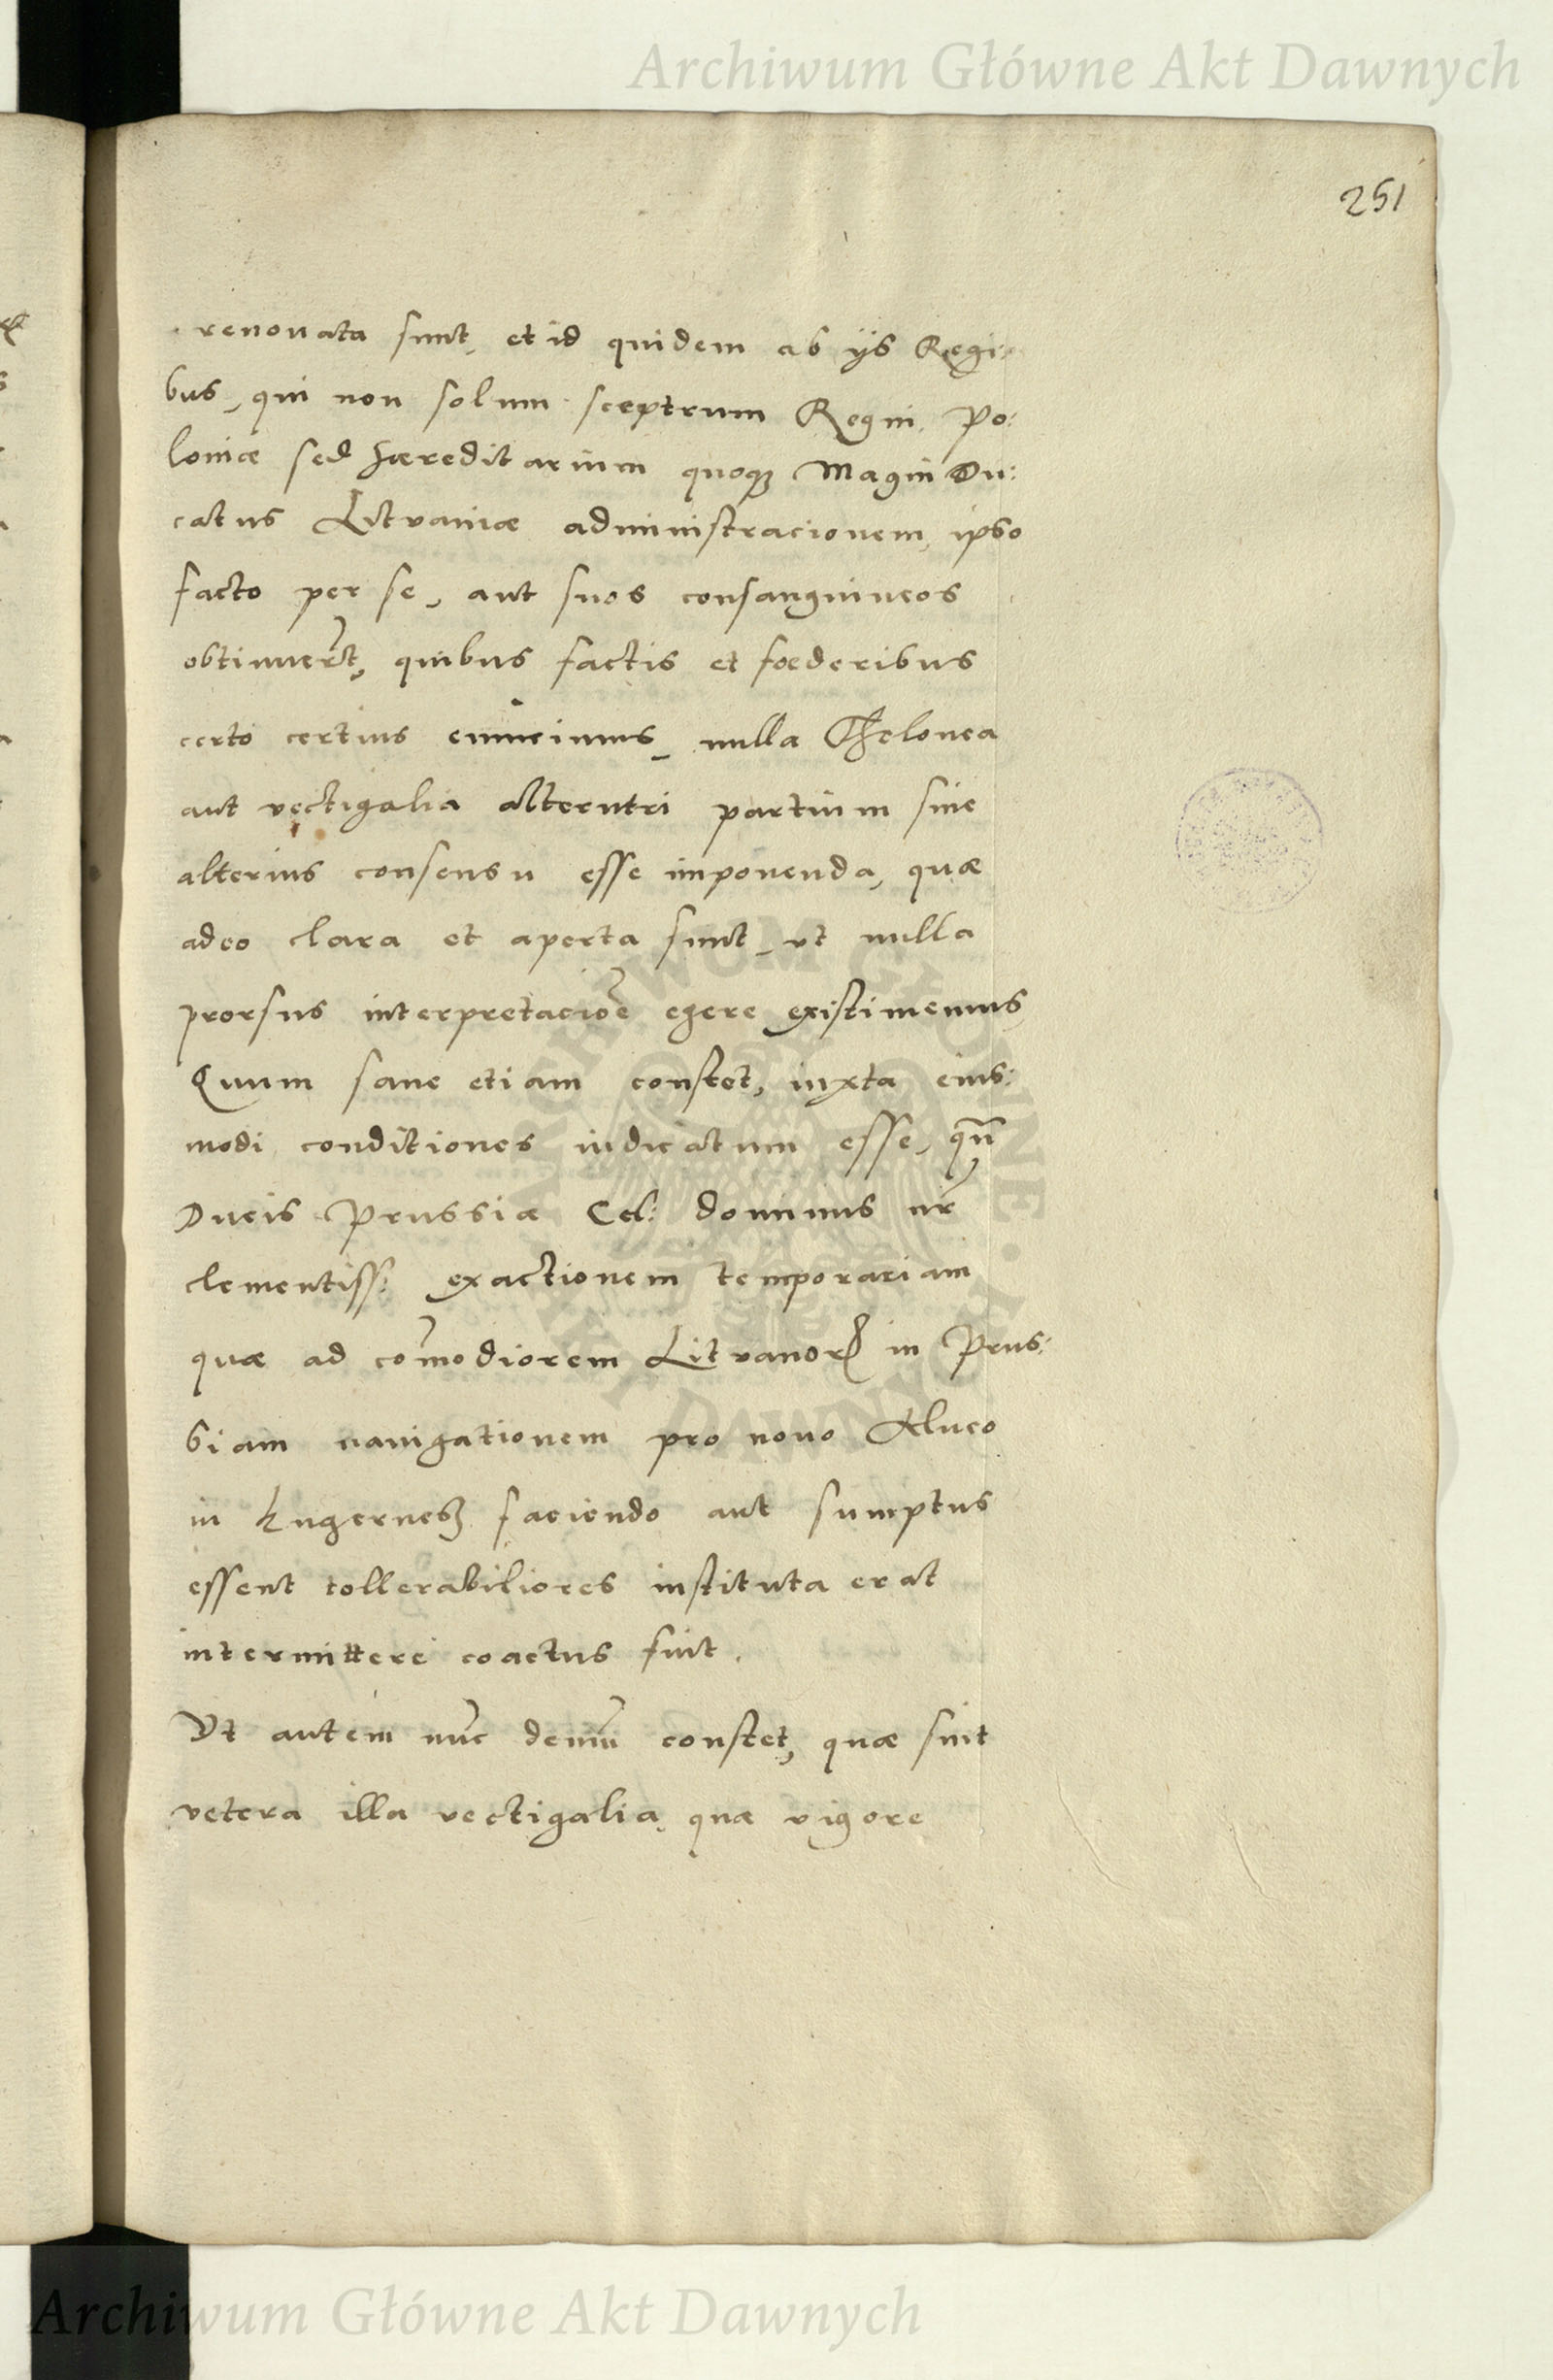 Archiwum Główne Akt Dawnych
251
renouata sunt, et id quidem ab ijs Regi:
bus, qui non solum sceptrum Regni Po:
loniæ sed hæreditarium quoqȝ Magni Du:
catus Lituaniæ administracionem, ipso
facto per se, aut suos consanguineos
obtinuerūt, quibus factis et foederibus
certo certius euincimus, nulla Thelonea
aut vectigalia alterutri partium sine
alterius consensu esse imponenda, quæ
adeo clara et aperta sunt, vt nulla
prorsus interpretaciōe egere existimemus,
Quum sane etiam constet, iuxta eius:
modi conditiones iudicatum esse, qn̄
Ducis Prussiæ Cel: dominus nr̄
clementiss: exactionem temporariam
quæ ad com̄odiorem Lituanorꝝ in Prus:
siam nauigationem pro nouo Alueo
in kugernesß faciendo aut sumptus
essent tollerabiliores instituta erat
intermittere coactus fuit.
Vt autem nūc demū constet, quæ sint
vetera illa vectigalia, quæ vigore
ARCHIWUM GŁÓWNE AKT DAWNYCH
Archiwum Główne Akt Dawnych